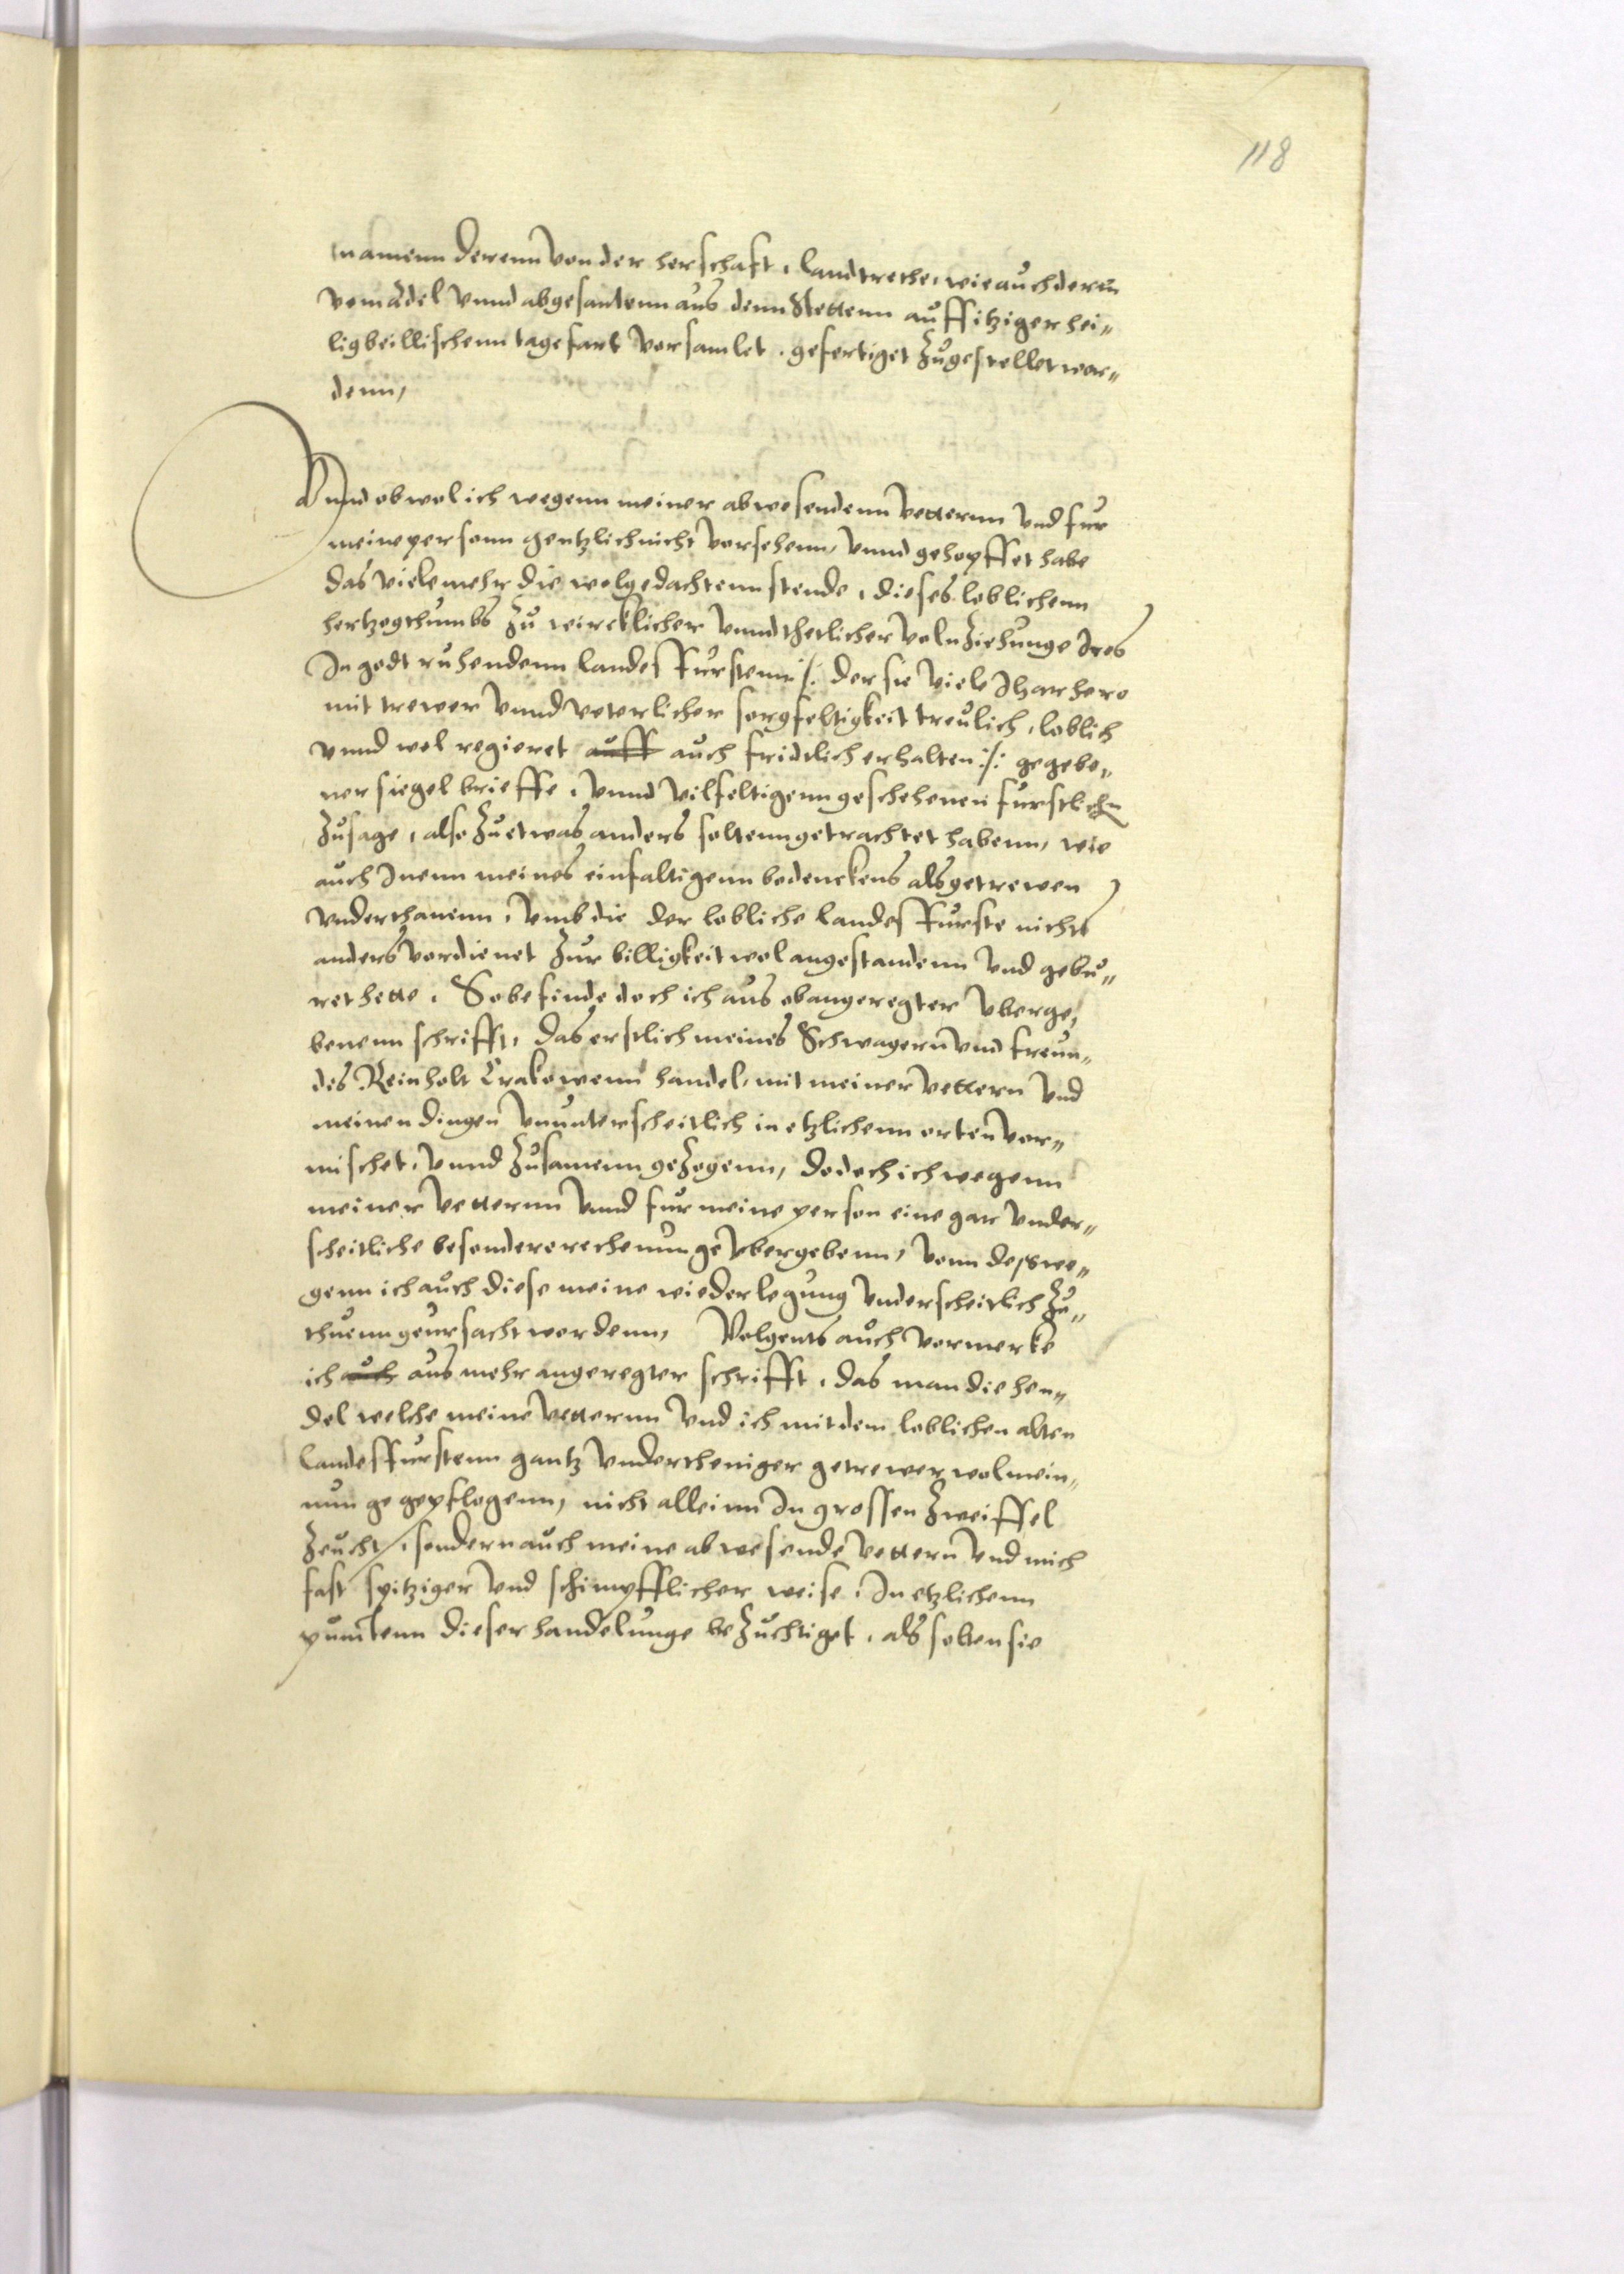 118
namenn derenn von der herschaft, landtrethe, wie auch derenn
vom Adel vnnd abgesantenn aus denn Stettenn auff itziger hei„
ligbeillischenn tagefart vorsamlet, gefertiget zugestellet wor„
denn,
Vnnd ob wol ich wegenn meiner abwesendenn vetternn vnd fur
meine personn gentzlich nicht vorsehenn, vnnd gehopffet habe
das viele mehr die wolgedachtenn stende, dieses loblichenn
hertzogthumbs zu wircklicher vnnd thetlicher volnziehunge Ires
In godt ruhendenn landesffurstenn :/: der sie viele Jhar hero
mit trewer vnnd veterlicher sorgfeltigkeit treulich, loblich
vnnd wol regieret auff auch fridtlich erhalten :/: gegebe„
ner siegel brieffe, vnnd vilfeltigenn geschehenen furstlichn
zusage, also zu etwas anders soltenn getrachtet habenn, wie
auch Inenn meines einfaltigenn bedenckens als getrewen
vnderthanenn, vmb die der lobliche landesffurste nichts
anders vordienet zur billigkeit wol angestandenn vnd gebu„
ret hette. So befinde doch ich aus obangeregter vberge„
benenn schrifft, das erstlich meines Schwagern vnd freun„
des Reinholt Crakowenn handel, mit meiner vettern vnd
meinen dingen vnunterscheitlich in etzlichenn orten vor„
mischet, vnnd zusamenn gezogenn, do doch ich wegenn
meiner vetternn vnnd fur meine person eine gar vnder„
scheitliche besondere rechenunge vbergebenn, vonn desswe„
genn ich auch diese meine wiederlegung vnderscheitlich zu„
thuenn geursacht wordenn, Volgents auch vormerke
ich auch aus mehr angeregter schrifft, das man die hen„
del welche meine vetternn vnd ich mit dem loblichen alten
landesffurstenn gantz vndertheniger getrewer wolmein„
nunge gepflogenn, nicht alleinn In grossen zweiffel
zeucht, sondern auch meine abwesende vettern vnd mich
fast spitziger vnd schimpfflicher weise, In etzlichenn
puncktenn dieser handelunge bezuchtiget, als solten sie